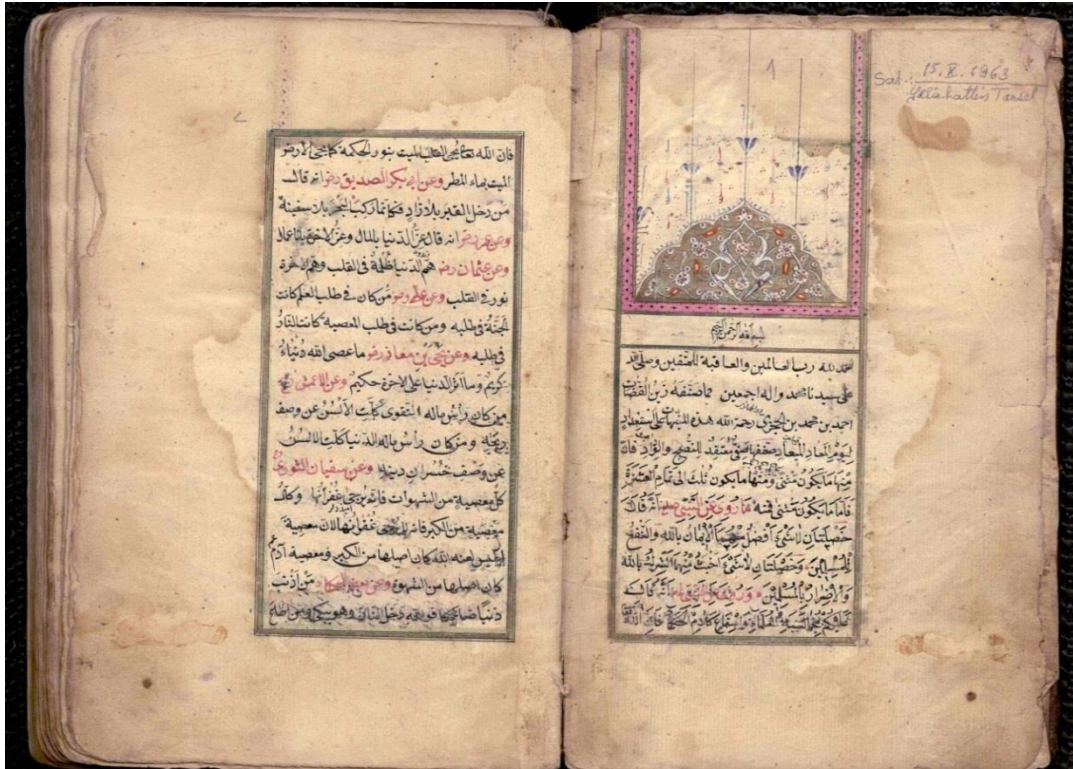 1
Sat.: 15.X.1963
Selâhattin Tansel
بسم الله الرحمن الرحيم
الحمد لله رب العالمين والعاقبة للمتقين وصلى الله
على سيدنا محمد واله اجمعين مما صنفه زين القضات
احمد بن محمد بن الحجرى رحمة الله هذه المنبهات على استعداد
ليوم المعاد
منها ما يكون مثنى ومنها ما يكون ثلث الى تمام العشرة
فاما ما يكون مثنى فمنه ما روى عن النبى صم انه قال
خصلتان لا شئ افضل منهما الايمان بالله والنفع
للمسلمين وخصلتان لا شئ اخبث منهما الشرك بالله
والاضرار بالمسلمين وروى عن النبى انه قال
عليكم بمجالسة العلماء واستماع كلام الحكماء فان الله
فان الله تعا يحيى القلب الميت بنور الحكمة كما يحيى الارض
الميت بماء المطر وعن ابى بكر الصديق رضو انه قال
من دخل القبر بلا زاد فكانما ركب البحر بلا سفينة
وعن عمر رضو انه قال عز الدنيا بالمال وعز الاخرة بالاعمال
وعن عثمان رضه هم الدنيا ظلمة فى القلب وهم الاخرة
نور فى القلب وعن على رضو من كان فى طلب العلم كانت
الجنة فى طلبه ومن كانت فى طلب المعصية كانت النار
فى طلبه وعن يحيى بن معاذ رضو ما عصى الله
كريم وما اثر الدنيا على الاخرة حكيم وعن الاعمش
من كان رأس ماله التقوى كلت الالسن عن وصف
ربحه ومن كان رأس ماله الدنيا كلت الالسن
عن وصف خسران دينه وعن سفيان الثورى
كل معصية من الشهوات فانه يرجى غفرانها وكل
معصية من الكبر فانه لا يرجى غفرانها لان معصية
ابليس لعنه الله كان اصلها من الكبر ومعصية آدم
كان اصلها من الشهوة وعن بعض الحكماء من اذنب
ذنبا ضاحكا فهو يدخل النار وهو يبكى ومن اطاع